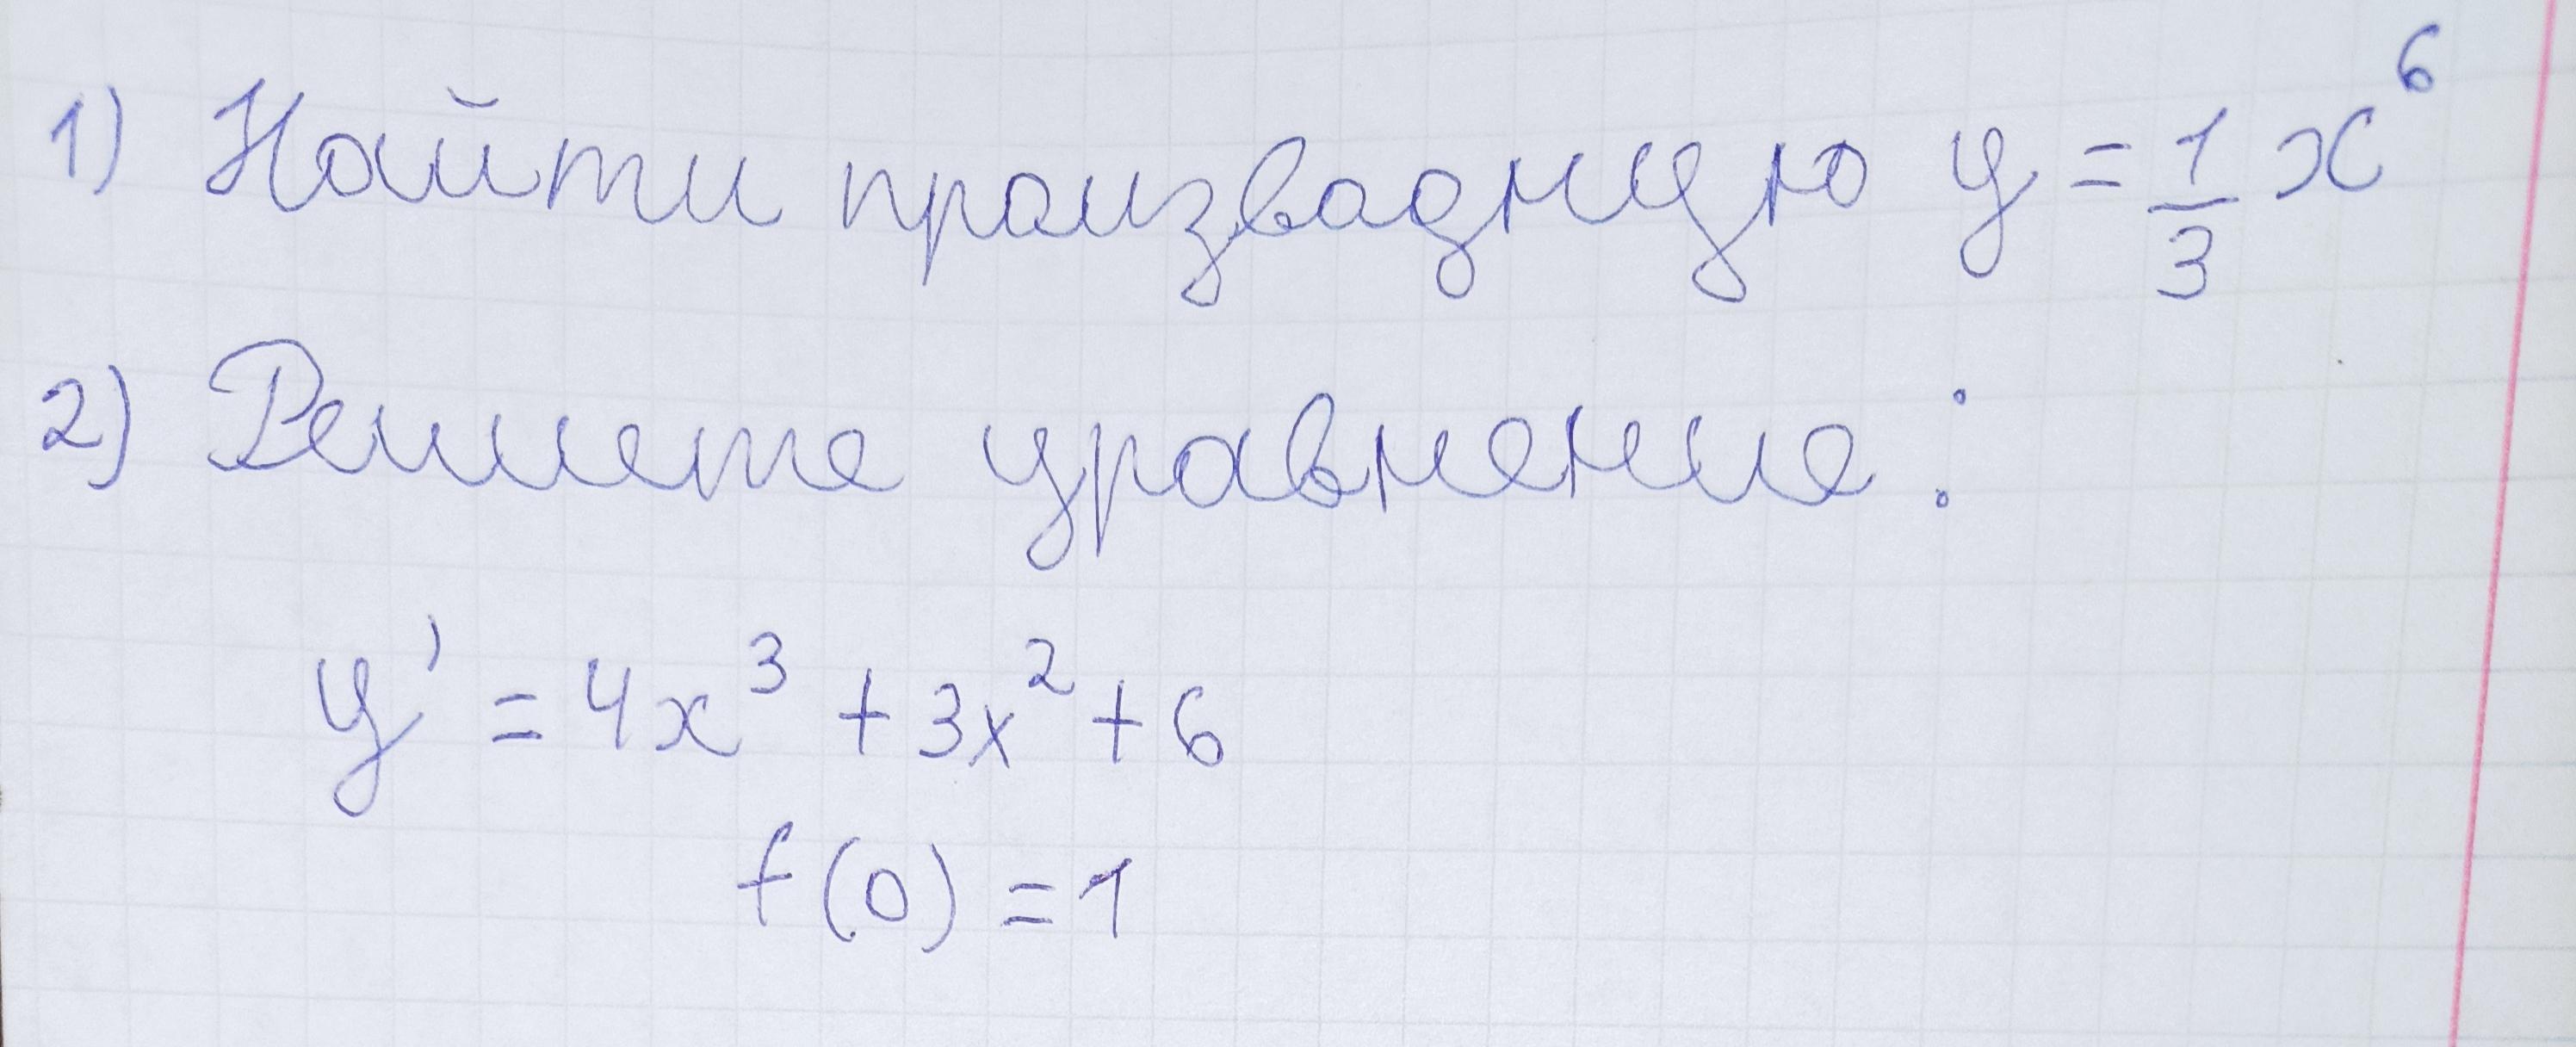 1) Найти производную y = 1/3 x⁶
2) Решите уравнение:
y' = 4x³ + 3x² + 6
f(0) = 1